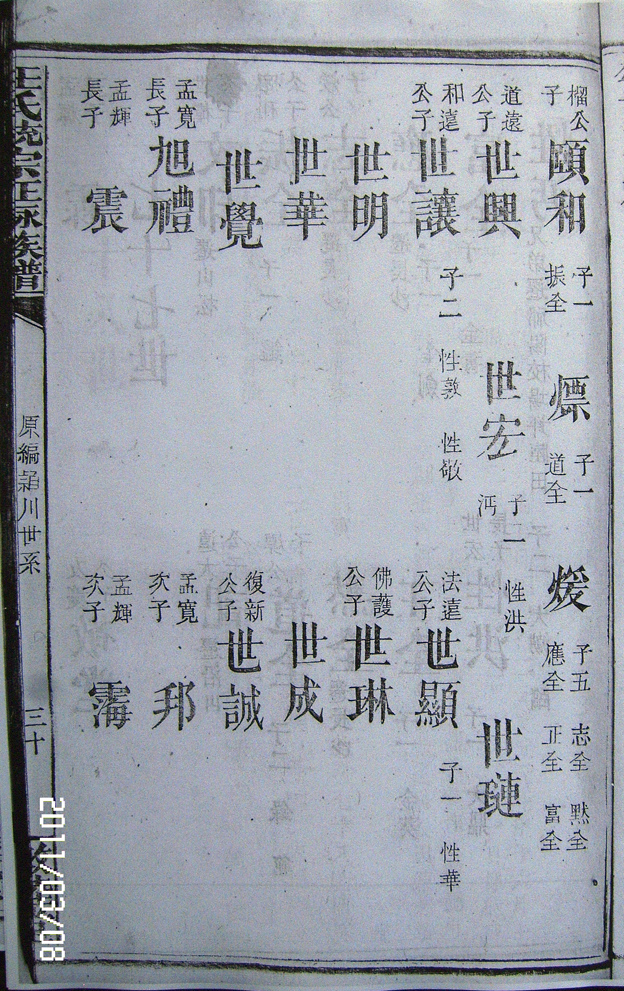 榴公子 頤和 子一 振全 㷸 子一 道全 煖 子五 志全 默全 應全 正全 富全
道遠公子 世興 世宏 子一 沔 性洪 世璉
和遠公子 世讓 子二 性敦 性敬 法遠公子 世顯 子一 性華
世明 佛護公子 世琳
世華 世成
世覺 復新公子 世誠
孟寬長子 旭禮 孟寬次子 邦
孟輝長子 震 孟輝次子 霶
汪氏統宗正脉族譜
原編 川世系
三十
2011/03/08